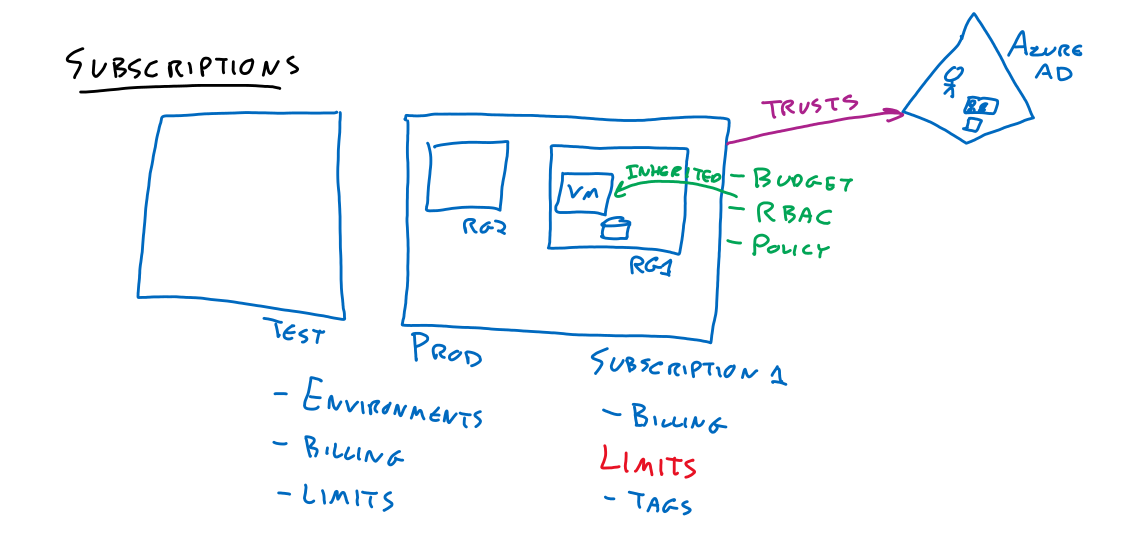 SUBSCRIPTIONS
AZURE
AD
TRUSTS
INHERITED
- BUDGET
- RBAC
- POLICY
VM
RG2
RG1
TEST
PROD
SUBSCRIPTION 1
- ENVIRONMENTS
- BILLING
- LIMITS
- BILLING
LIMITS
- TAGS